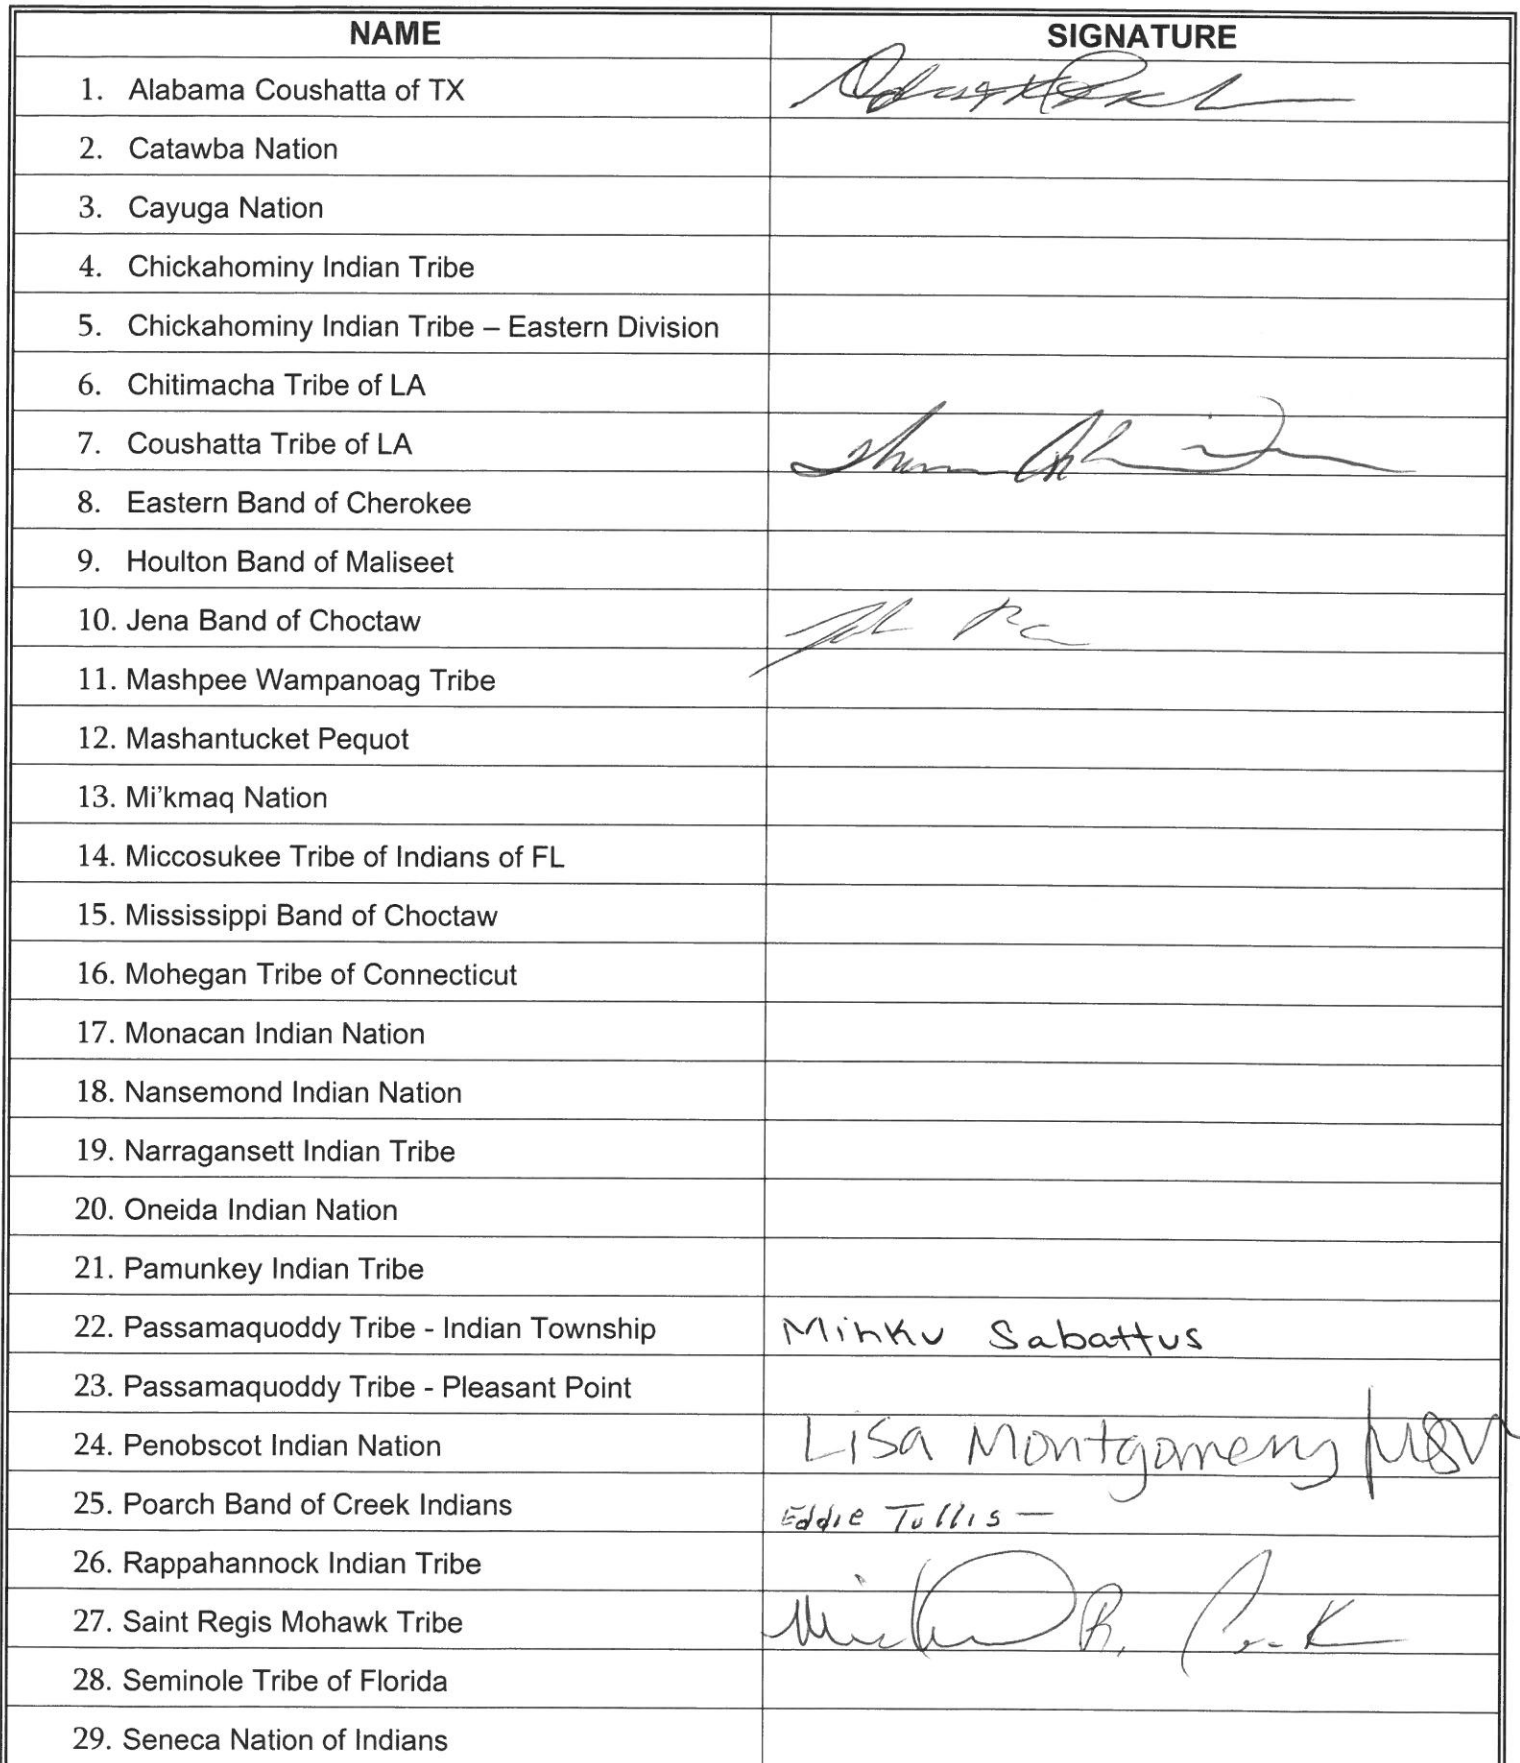 NAME SIGNATURE
1. Alabama Coushatta of TX
2. Catawba Nation
3. Cayuga Nation
4. Chickahominy Indian Tribe
5. Chickahominy Indian Tribe – Eastern Division
6. Chitimacha Tribe of LA
7. Coushatta Tribe of LA
8. Eastern Band of Cherokee
9. Houlton Band of Maliseet
10. Jena Band of Choctaw
11. Mashpee Wampanoag Tribe
12. Mashantucket Pequot
13. Mi'kmaq Nation
14. Miccosukee Tribe of Indians of FL
15. Mississippi Band of Choctaw
16. Mohegan Tribe of Connecticut
17. Monacan Indian Nation
18. Nansemond Indian Nation
19. Narragansett Indian Tribe
20. Oneida Indian Nation
21. Pamunkey Indian Tribe
22. Passamaquoddy Tribe - Indian Township Mihku Sabattus
23. Passamaquoddy Tribe - Pleasant Point
24. Penobscot Indian Nation Lisa Montgomery
25. Poarch Band of Creek Indians Eddie Tullis —
26. Rappahannock Indian Tribe
27. Saint Regis Mohawk Tribe Michael R.
28. Seminole Tribe of Florida
29. Seneca Nation of Indians